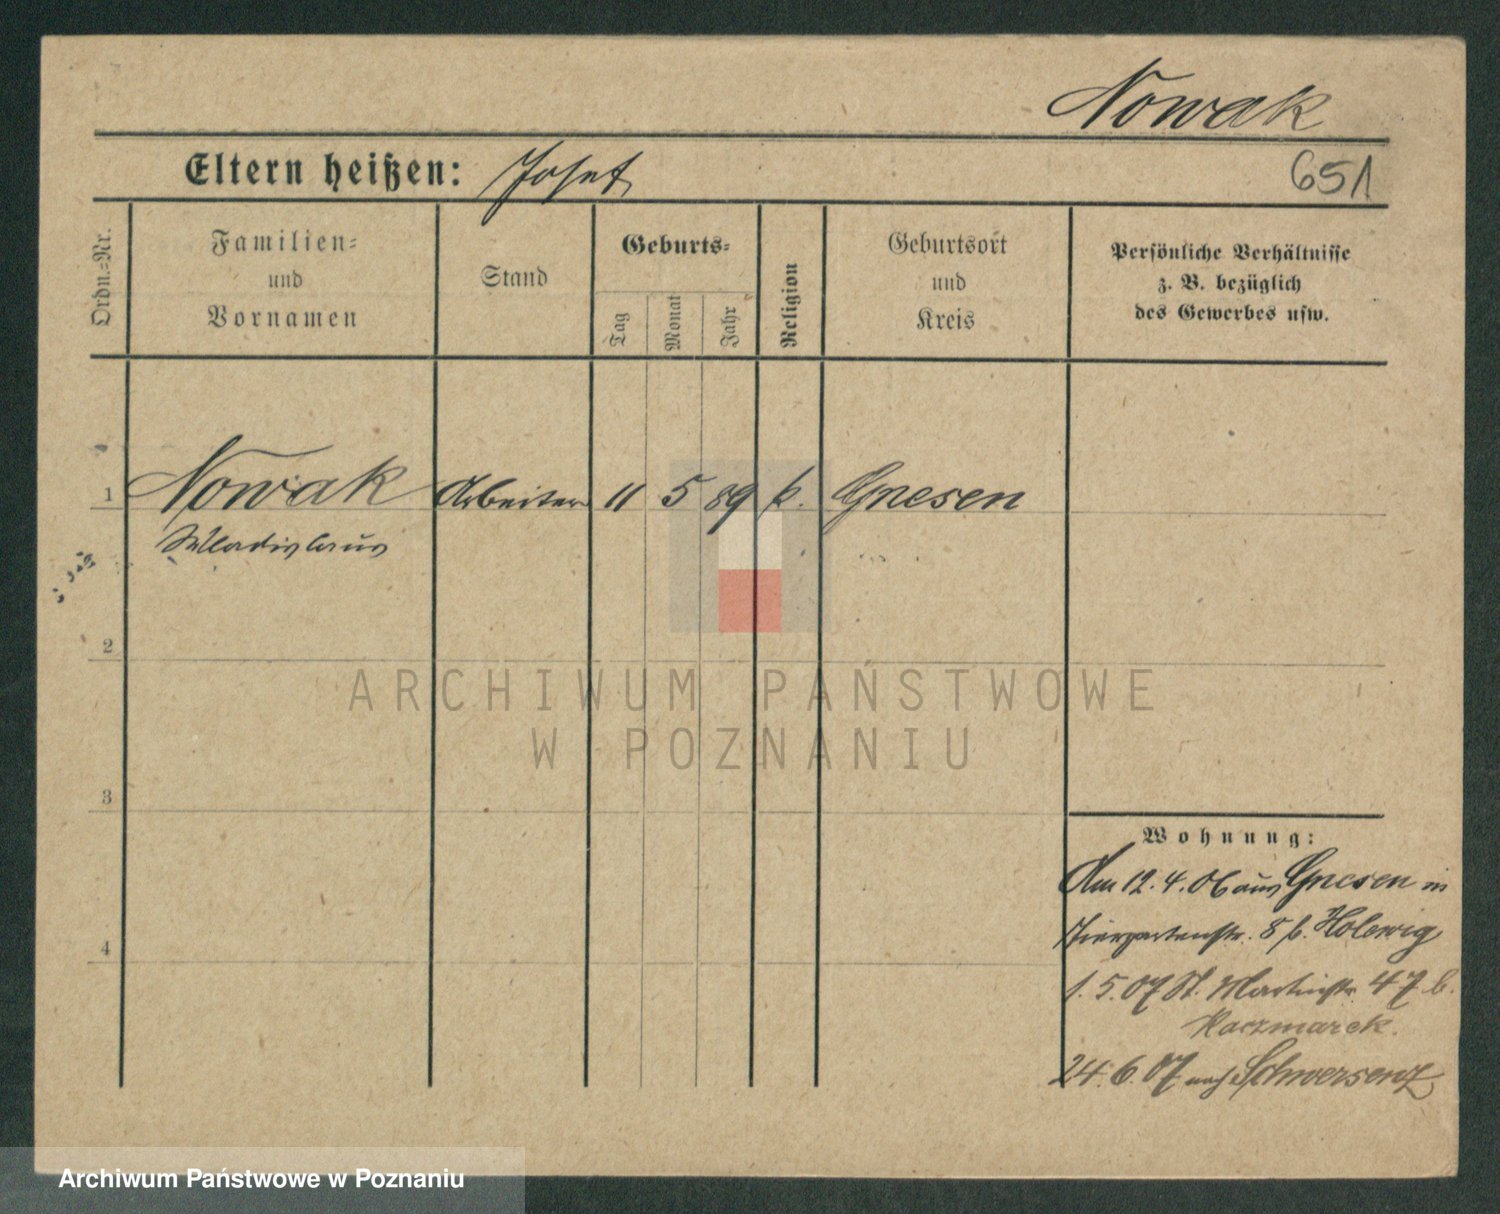 Nowak
Eltern heißen: Josef
651
Ordn.=Nr.
Familien=
und
Vornamen
Stand
Geburts=
Tag
Monat
Jahr
Religion
Geburtsort
und
Kreis
Persönliche Verhältnisse
z. B. bezüglich
des Gewerbes usw.
1 Nowak Arbeiter 11 5 89 k. Gnesen
Wladislaus
2
ARCHIWUM PAŃSTWOWE
W POZNANIU
3
Wohnung:
Am 12.4.06 aus Gnesen in
Tiergartenstr. 8 b.
4
1.5.07 St. Martinstr. 47 b.
Kaczmarek.
24.6.07 nach Schwersenz
Archiwum Państwowe w Poznaniu